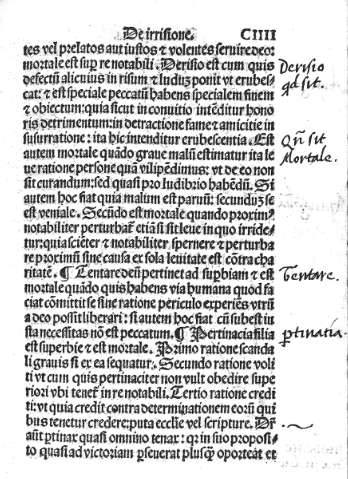 De irrisione. CIIII
tes vel prelatos aut iustos & volentes seruire deo:
mortale est sup̱ re notabili. Derisio est cum quis
defectū alicuius in risum & ludū ponit vt erubes-
cat: & est speciale peccatū habens specialem finem
& obiectum: quia sicut in conuitio intēditur hono
ris detrimentum: in detractione fame & amicitie in
susurratione: ita hic intenditur erubescentia. Est
autem mortale quādo graue malū estimatur ita le
ue ratione persone quā vilipēdimus: vt de eo non
sit curandum: sed quasi pro ludibrio habēdū. Si
autem hoc fiat quia malum est paruū: secundū se
est veniale. Secūdo est mortale quando proximꝰ
notabiliter perturbat᷑ etiā si sit leue in quo irride-
tur: quia sciēter & notabiliter spernere & perturba
re proximū sine causa ex sola leuitate est cōtra cha
ritatē. ¶ Tentare deū pertinet ad supḇiam & est
mortale quādo quis habens via humana quod fa
ciat cōmittit se sine ratione periculo experiēs vtrū
a deo possit liberari: si autem hoc fiat cū subest iu
sta necessitas nō est peccatum. ¶ Pertinacia filia
est superbie & est mortale. Primo ratione scanda
li grauis si ex ea sequatur. Secundo ratione voli
ti vt cum quis pertinaciter non vult obedire supe
riori vbi tenet᷑ in re notabili. Tertio ratione credi
ti: vt quia credit contra determinationem eorū qui
bus tenetur credere: puta ecclie vel scripture. Dr̄
aūt ptinax quasi omnino tenax: qr in suo proposi-
to quasi ad victoriam pseuerat plusq̄ oporteat et
Derisio
qd sit.
Qn̄ sit
Mortale.
Tentare.
ptinatia.